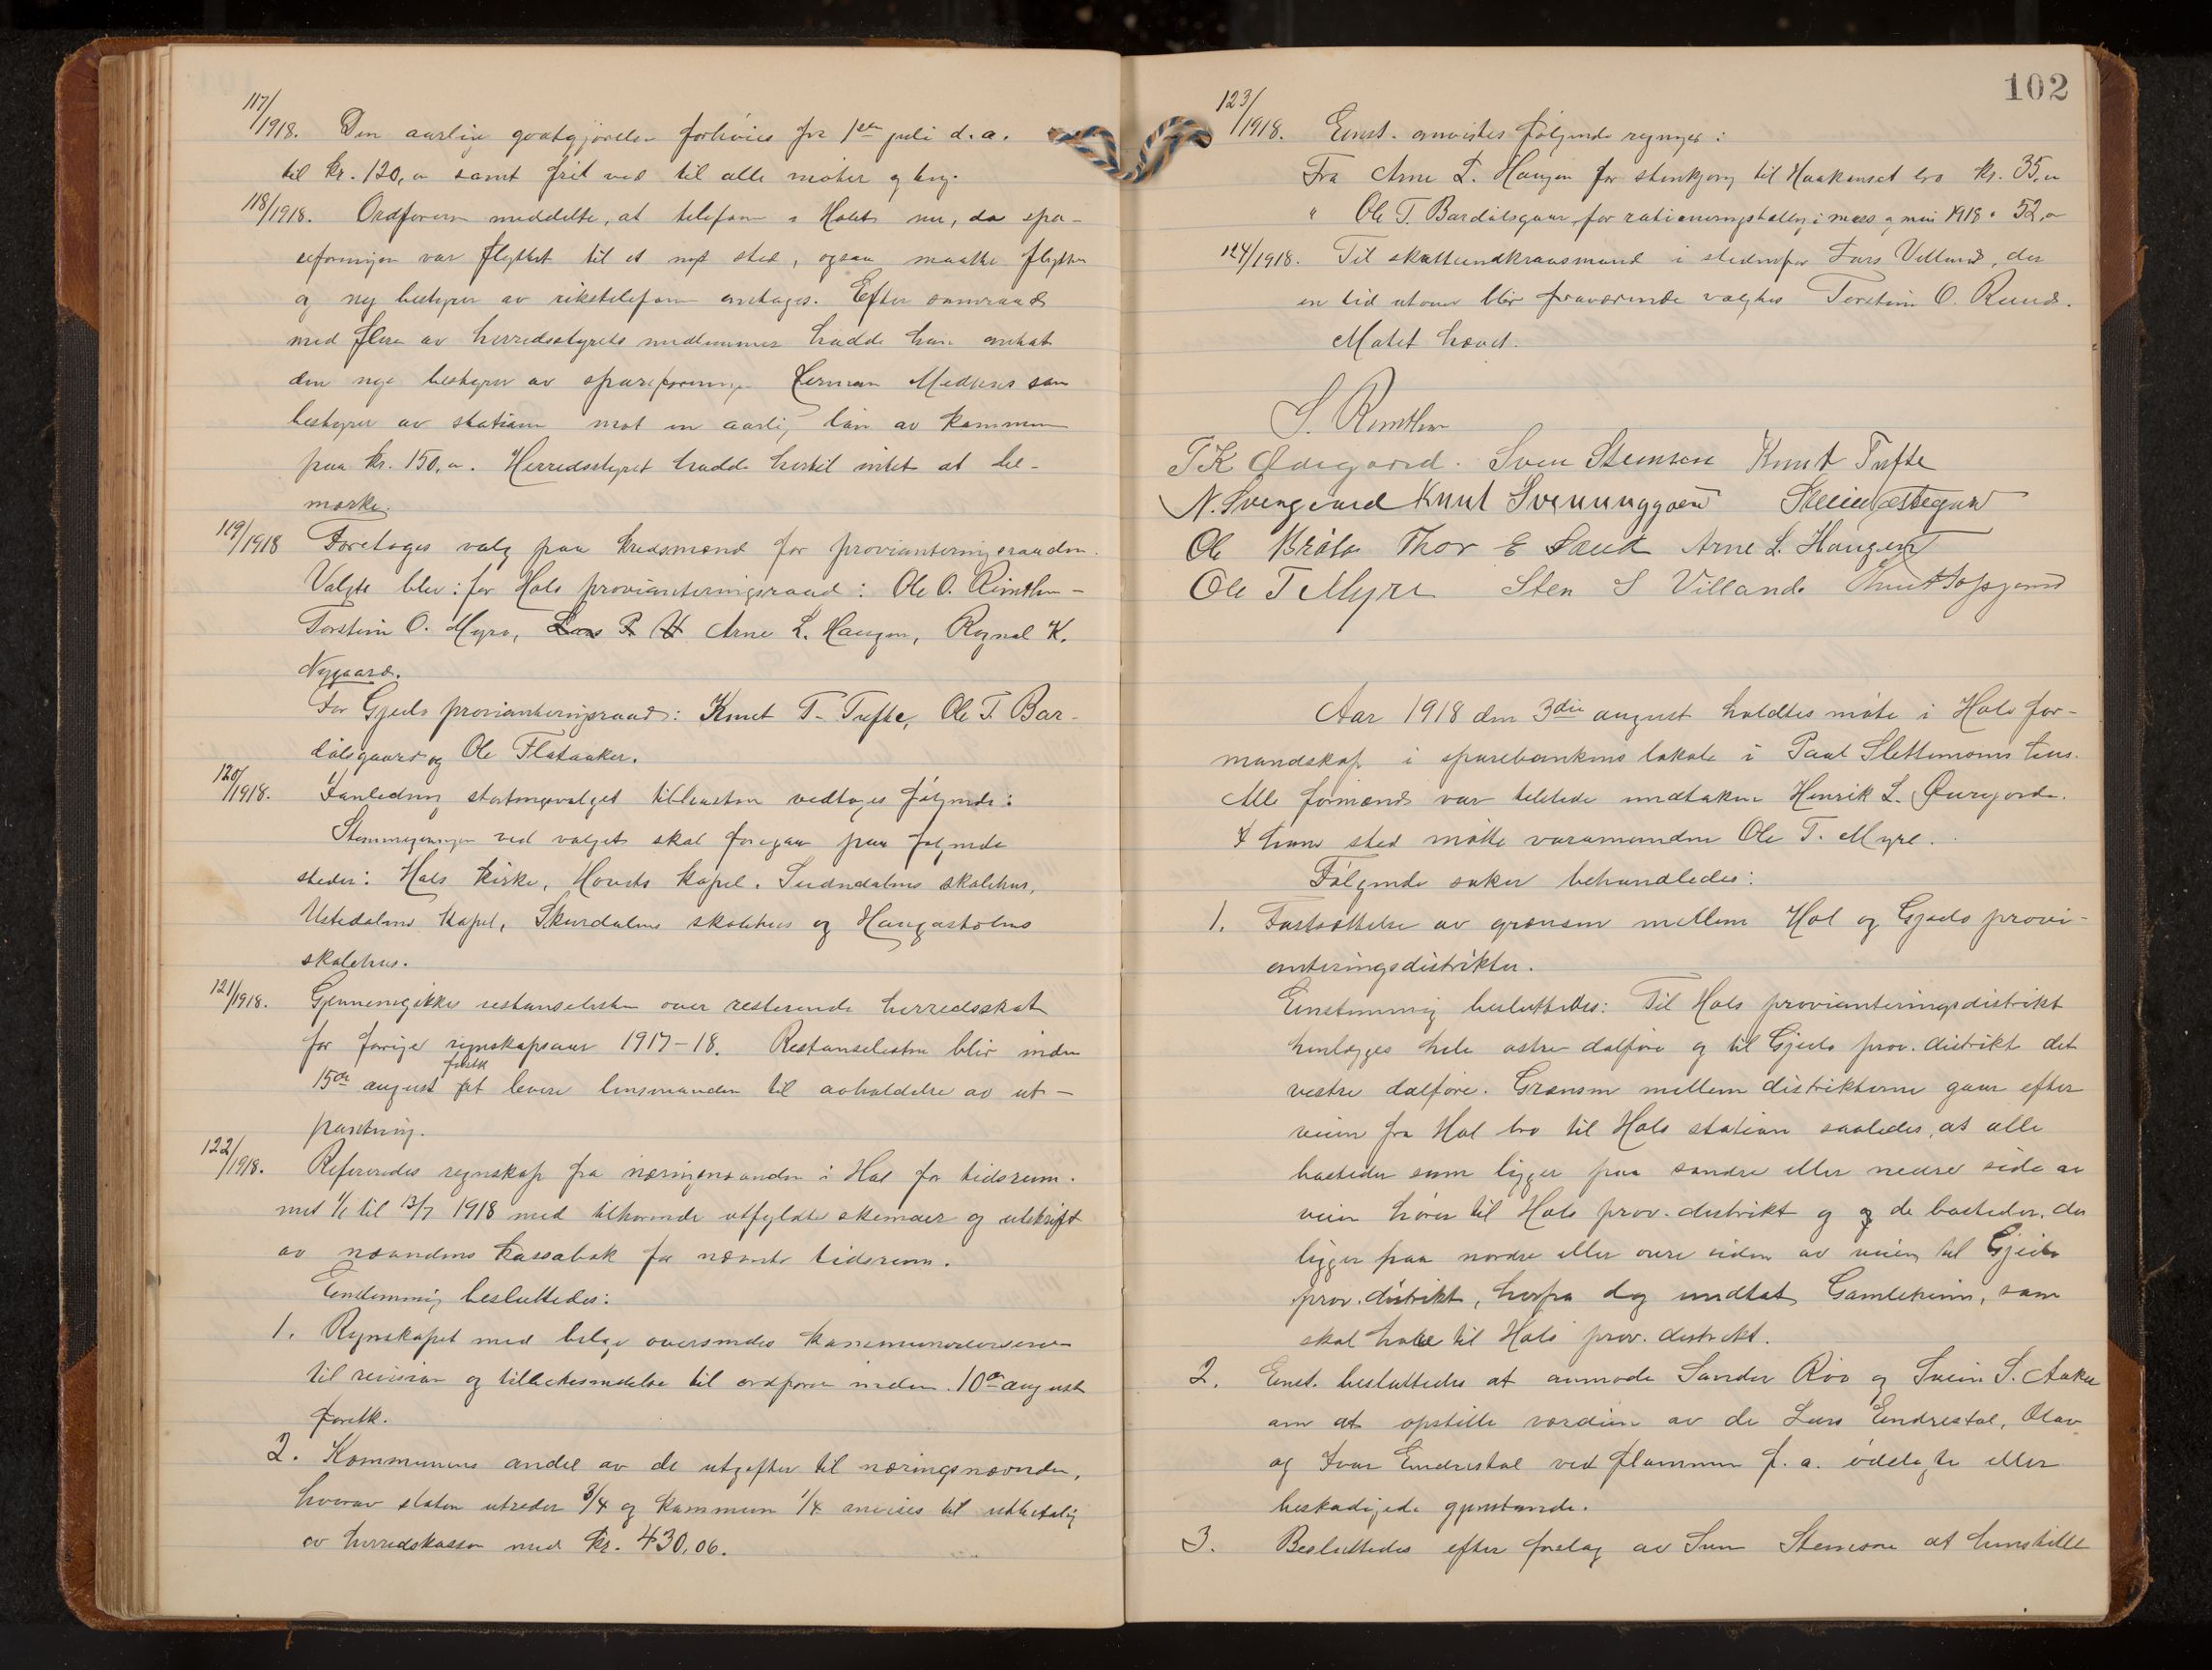 117/1918. Den aarlige godtgjørelse forhøies fra 1ste juli d. a.
til kr. 120,00 samt frit ved til alle møter og ting.
118/1918. Ordføreren meddelte, at telefonen i Hol nu, da spa-
reforeningen var flyttet til et nyt sted, ogsaa maatte flyttes
og ny bestyrer av rikstelefonen antages. Efter samraad
med flere av herredsstyrets medlemmer hadde han antat
den nye bestyrer av spareforeningen Herman Medhus som
bestyrer av stationen mot en aarlig løn av kommunen
paa kr. 150,00. Herredsstyret hadde hertil intet at be-
merke.
119/1918 Foretoges valg paa kredsmænd for provianteringsraadene.
Valgte blev: for Hols provianteringsraad: Ole O. Rimthun -
Torstein O. Myro, Lars P. H Arne L. Haugen, Ragnal K.
Nygaard.
For Gjeilo provianteringsraad: Knut T. Tufte, Ole T. Bar-
dølsgaard og Ole Flataaker.
120/1918. I anledning stortingsvalget tilhøsten vedtoges følgende:
Stemmegivningen ved valget skal foregaa paa følgende
steder: Hols kirke, Hovets kapel, Sudndalens skolehus,
Ustedalens kapel, Skurdalens skolehus og Haugastølens
skolehus.
121/1918. Gjennemgikkes restanselisten over resterende herredsskat
for forrige regnskapsaar 1917-18. Restanselisten blir inden
førstk
15de august at levere lensmanden til avholdelse av ut-
pantning.
122/1918. Refereredes regnskap fra næringsnævnden i Hol for tidsrum-
met 1/1 til 13/7 1918 med tilhørende utfyldte skemaer og utskrift
av nævndens kassabok for nævnte tidsrum.
Enstemmig besluttedes:
1. Regnskapet med bilag oversendes kommunerevisoren
til revision og tilbakesendelse til ordfører inden 10de august
førstk.
2. Kommunens andel av de utgifter til næringsnævnden,
hvorav staten utreder 3/4 og kommunen 1/4 anvises til utbetaling
av herredskassen med kr. 430,06.
102
123/1918. Enst. anvistes følgende regninger:
Fra Arne L. Haugen for stenkjøring til Haakonset bro kr. 35,00
" Ole T. Bardølsgaard for rationeringstælling i mars og mai 1918 " 52,00
124/1918. Til skatteindkrævsmand i stedenfor Lars Villand, der
en tid utover blir fraværende valgtes Torstein O. Ruud.
Møtet hævet.
S. Rimthun
T K Ødegaard. Sven Stensen Knut Tufte
N. Svengaard Knut Svenunggaard Stein Østegaard
Ole Bråta Thor E Sæud Arne L. Haugen
Ole T Myre Sten S Villand. Knut
Aar 1918 den 3die august holdtes møte i Hols for-
mandskap i sparebankens lokale i Paal Slettemoens hus.
Alle formænd var tilstede undtaken Henrik L. Øvregarde.
I hans sted møtte varamanden Ole T. Myre.
Følgende saker behandledes:
1. Fastsættelse av grænsen mellem Hol og Gjeilo provi-
anteringsdistrikter.
Einstemmig besluttedes: Til Hols provianteringsdistrikt
henlægges hele østre dalføre og til Gjeilo prov. distrikt det
vestre dalføre. Grænsen mellem distrikterne gaar efter
veien fra Hol bro til Hols station saaledes, at alle
bosteder som ligger paa søndre eller nedre side av
veien hører til Hols prov. distrikt og og de bosteder, der
ligger paa nordre eller øvre siden av veien til Gjeilo
prov. distrikt, herfra dog undtat Gamleheim, som
skal høre til Hols prov. distrikt.
2. Enst. besluttedes at anmode Sander Röo og Svein S. Aaker
om at opstille værdien av de Lars Eindrestøl, Olav
og Ivar Eindrestøl ved flommen f. a. ødelagte eller
beskadigede gjenstande.
3. Besluttedes efter forslag av Sven Stensen at henstille